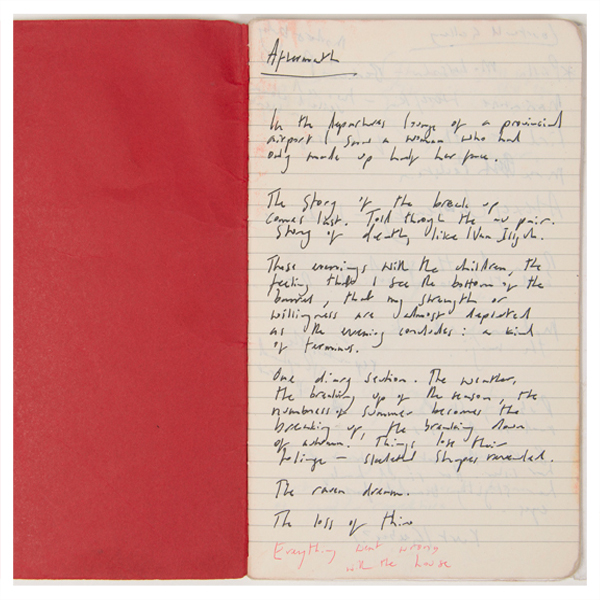 Aftermath
In the departures lounge of a provincial
airport I saw a woman who had
only made up half her face.
The story of the break up
comes last. Told through the au pair.
Story of death, like Ivan Ilych.
Those evenings with the children, the
feeling that I see the bottom of the
barrel, that my strength or
willingness are almost depleted
as the evening concludes: a kind
of terminus.
One diary section. The weather,
the breaking up of the season, the
numbness of summer becomes the
breaking up, the breaking down
of autumn. Things lose their
foliage – skeletal shapes revealed.
The raven dream.
The loss of
Everything went wrong
with the house